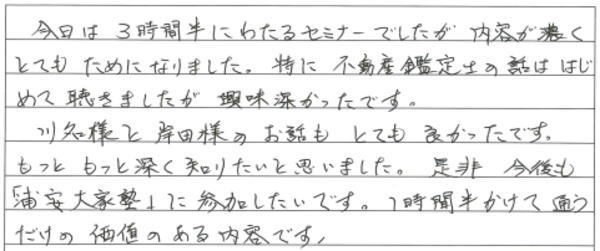 今日は 3時間半にわたるセミナーでしたが 内容が濃く
とても ためになりました。特に 不動産鑑定士の話は はじ
めて 聴きましたが 興味深かったです。
川名様と 岸田様の お話も とても 良かったです。
もっと もっと深く 知りたいと思いました。是非 今後も
「浦安大家塾」に 参加したいです。1時間半かけて 通う
だけの 価値の ある 内容です!